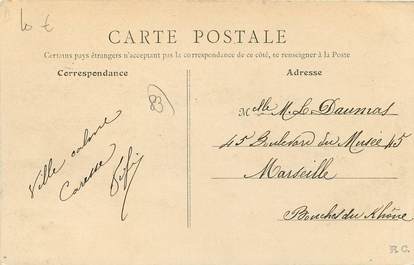 10 €
CARTE POSTALE
Certains pays étrangers n'acceptant pas la correspondance de ce côté, se renseigner à la Poste
Correspondance
Adresse
83
Melle M. L. Daumas
45 Boulevard du Musée 45
Marseille
Bouches du Rhône
Ville calme
Caresse
Fifi
R.C.